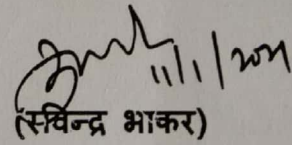 11/1/2021
(सचिन्द्र भाकर)